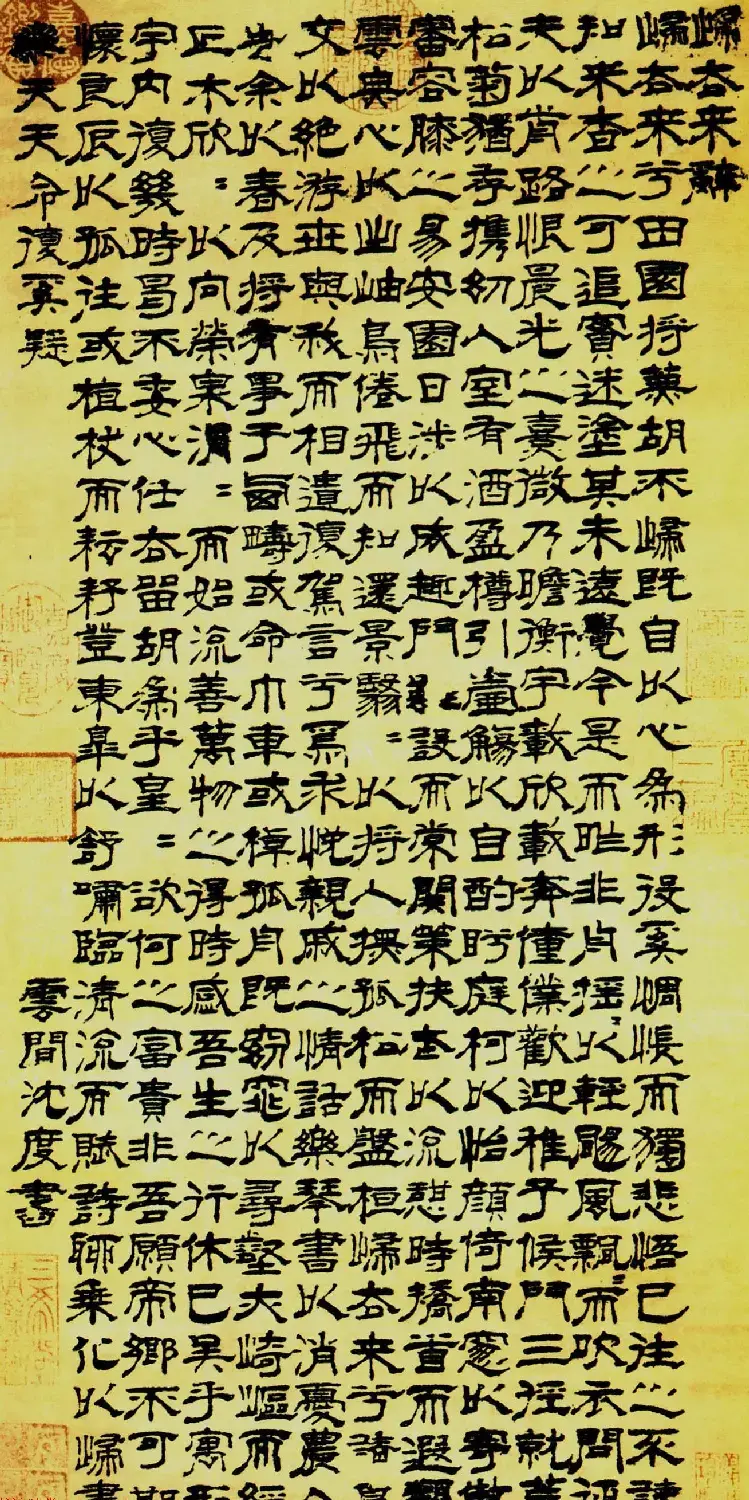 歸去来辭
歸去来兮田園将蕪胡不歸既自以心為形役奚惆悵而獨悲悟已往之不諫
知来者之可追實迷塗其未遠覺今是而昨非舟揺〻以輕颺風飄〻而吹衣問征
夫以前路恨晨光之熹微乃瞻衡宇載欣載奔僮僕歡迎稚子候門三徑就荒
松菊猶存携幼入室有酒盈樽引壺觴以自酌眄庭柯以怡顔倚南窻以寄傲
審容膝之易安園日涉以成趣門雖設而常関策扶老以流憩時矯首而遐觀
雲無心以出岫鳥倦飛而知還景翳〻以将入撫孤松而盤桓歸去来兮請息
交以絶游世與我而相遺復駕言兮焉求悦親戚之情話樂琴書以消憂農人
告余以春及将有事于西疇或命巾車或棹孤舟既窈窕以尋壑亦崎嶇而經
丘木欣〻以向榮泉涓〻而始流善萬物之得時感吾生之行休已矣乎寓形
宇内復幾時曷不委心任去留胡為乎皇〻欲何之富貴非吾願帝鄉不可期
懷良辰以孤往或植杖而耘耔登東皋以舒嘯臨清流而賦詩聊乗化以歸盡
樂夫天命復奚疑
雲間沈度書